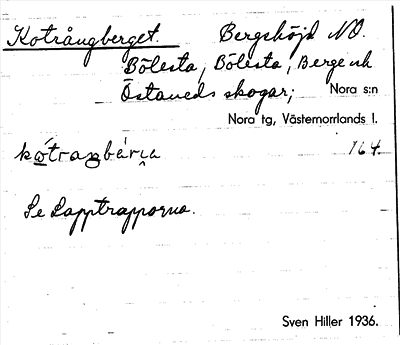 Kotrångberget. Bergshöjd NO.
Bölesta, Bölesta, Berge och
Östaneds skogar; Nora s:n
Nora tg, Västernorrlands l.
164.
Se Lapptrapporna.
Sven Hiller 1936.